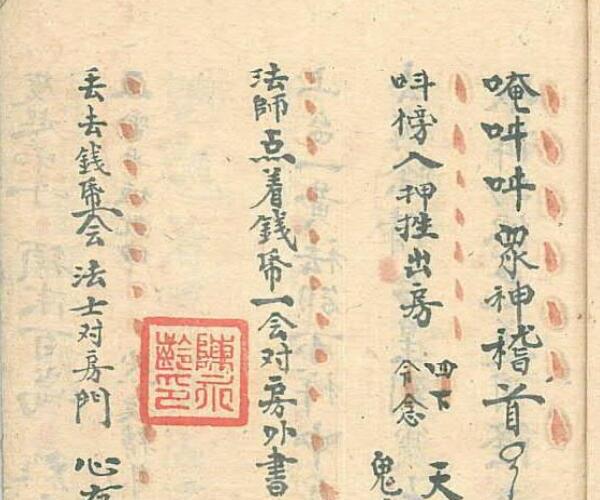 唵吽吽眾神稽首
吽傍入押煞出房 四下令念 天
鬼
法師点着錢帋一会对房外書
丢去錢帋会法士对房門 心有
陳永齡印